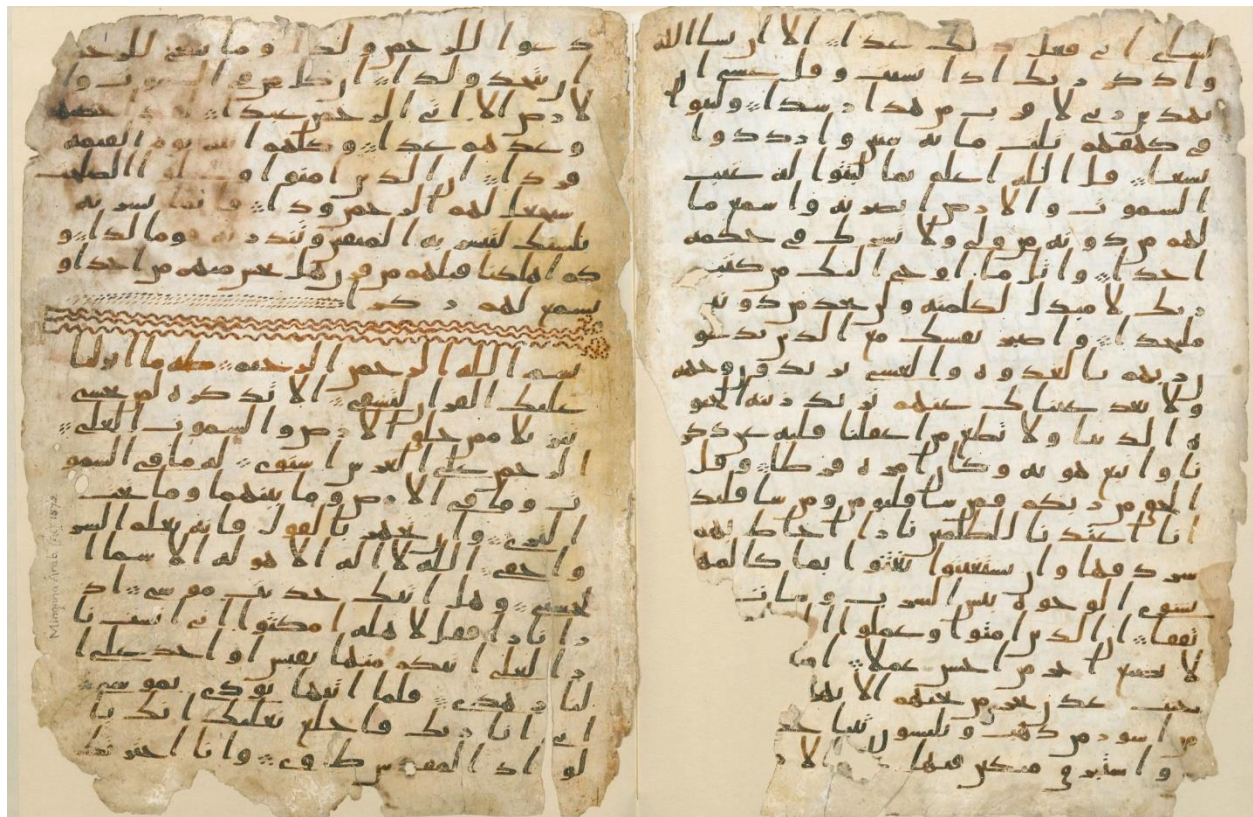 لشاى انى فعل ذلك غدا الا ان يشا الله
واذكر ربك اذا نسيت وقل عسى ان
يهدين ربى لاقرب من هذا رشدا ولبثوا
فى كهفهم ثلث مايه سنين وازددوا
تسعا قل الله اعلم بما لبثوا له غيب
السموت والارض ابصر به واسمع ما
لهم من دونه من ولى ولا يشرك فى حكمه
احدا واتل ما اوحى اليك من كتب
ربك لا مبدل لكلمته ولن تجد من دونه
ملتحدا واصبر نفسك مع الذين يدعو
ن ربهم بالغدوه والعشى يريدون وجهه
ولا تعد عيناك عنهم تريد زينه الحيو
ه الدنيا ولا تطع من اغفلنا قلبه عن ذكر
نا واتبع هويه وكان امره فرطا وقل
الحق من ربكم فمن شا فليومن ومن شا فليكفر
انا اعتدنا للظلمين نارا احاط بهم
سردقها وان يستغيثوا يغثوا بما كالمهل
يشوى الوجوه بيس الشرب وسات
ان الذين امنوا وعملوا
لا نضيع اجر من احسن عملا
جنت عدن تجرى من تحتهم
من اسور من ذهب ويلبسون ثيابا
واستبرق متكين فيها
دعوا للرحمن ولدا وما ينبغى للرحمن
ان يتخذ ولدا ان كل من فى السموت وا
لارض الا اتى الرحمن عبدا لقد احصهم
وعدهم عدا وكلهم اتيه يوم القيمه
فردا ان الذين امنوا وعملوا الصلحت
سيجعل لهم الرحمن ودا فانما يسرنه
بلسنك لتبشر به المتقين وتنذر به قوما لدا و
كم اهلكنا قبلهم من قرن هل تحس منهم من احد او
تسمع لهم ركزا
بسم الله الرحمن الرحيم طه ما انزلنا
عليك القران لتشقى الا تذكره لمن يخشى
تنزيلا ممن خلق الارض والسموت العلى
الرحمن على العرش استوى له ما فى السمو
ت وما فى الارض وما بينهما وما تحت
الثرى وان تجهر بالقول فانه يعلم السر
واخفى الله لا اله الا هو له الاسما ا
لحسنى وهل اتيك حديث موسى اذ
را نارا فقل لاهله امكثوا انى انست نا
را لعلى اتيكم منها بقبس او اجد على ا
لنار هدى فلما اتيها نودى يموسى
انى انا ربك فاخلع نعليك انك با
لواد المقدس طوى وانا اخترتك
Mingana Arab. Isl. 1572